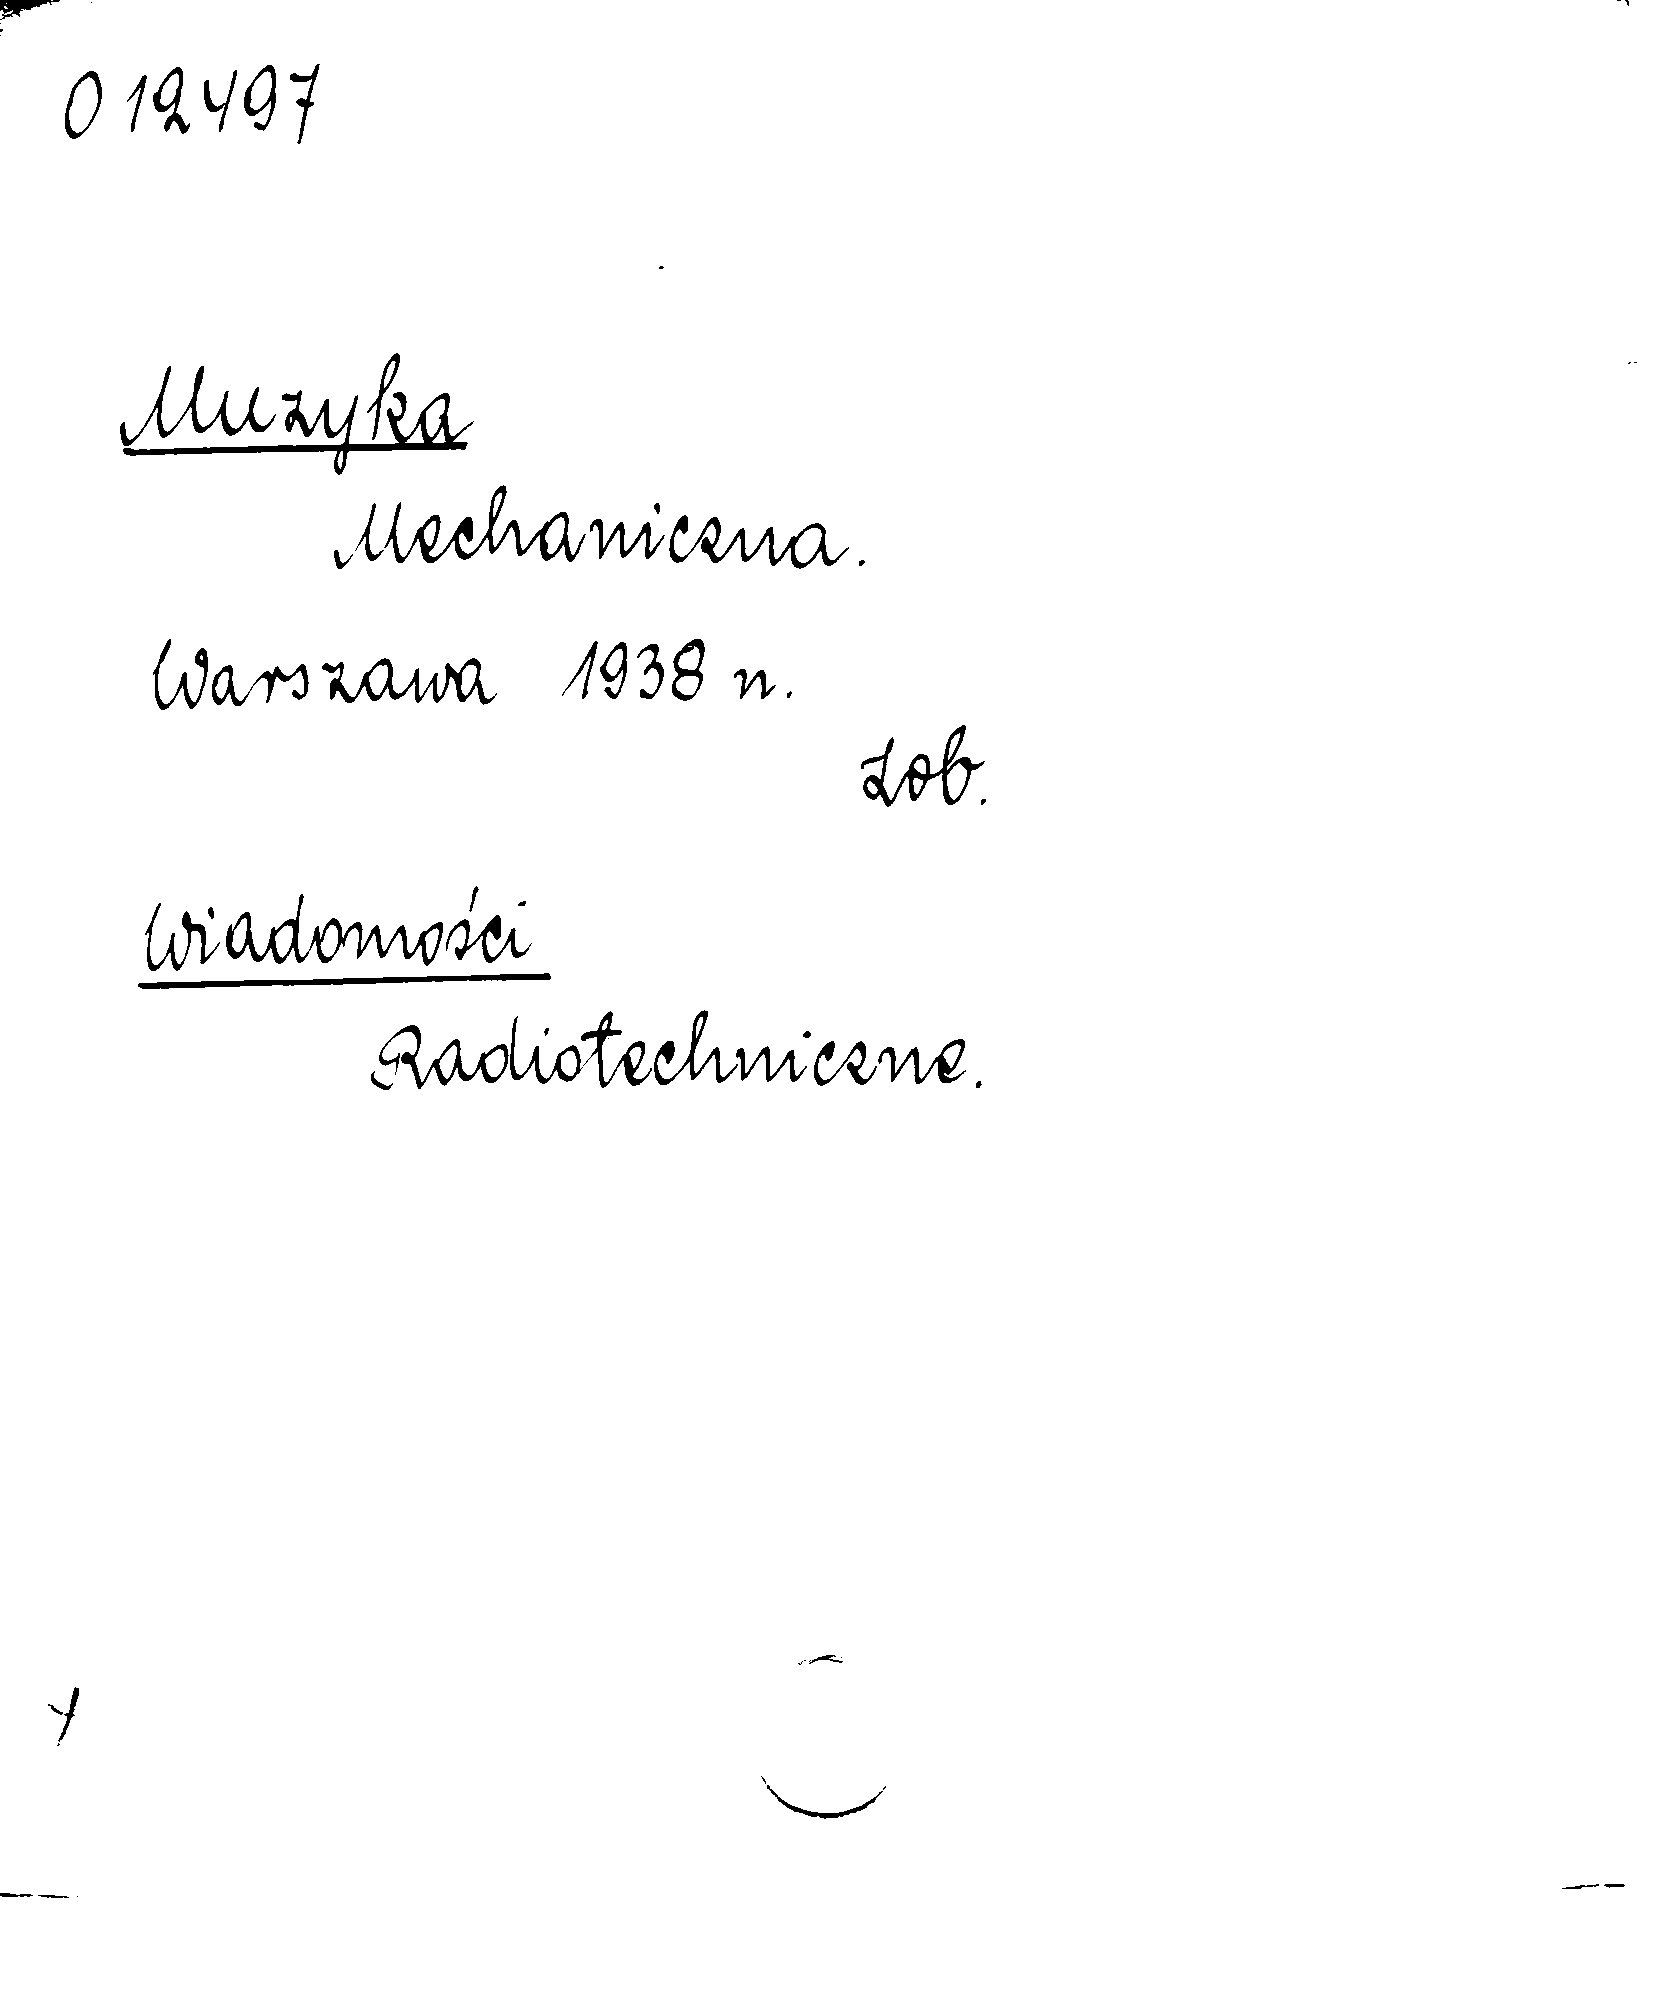 012497
Muzyka
Mechaniczna.
Warszawa 1938 n.
Zob.
Wiadomości
Radiotechniczne.